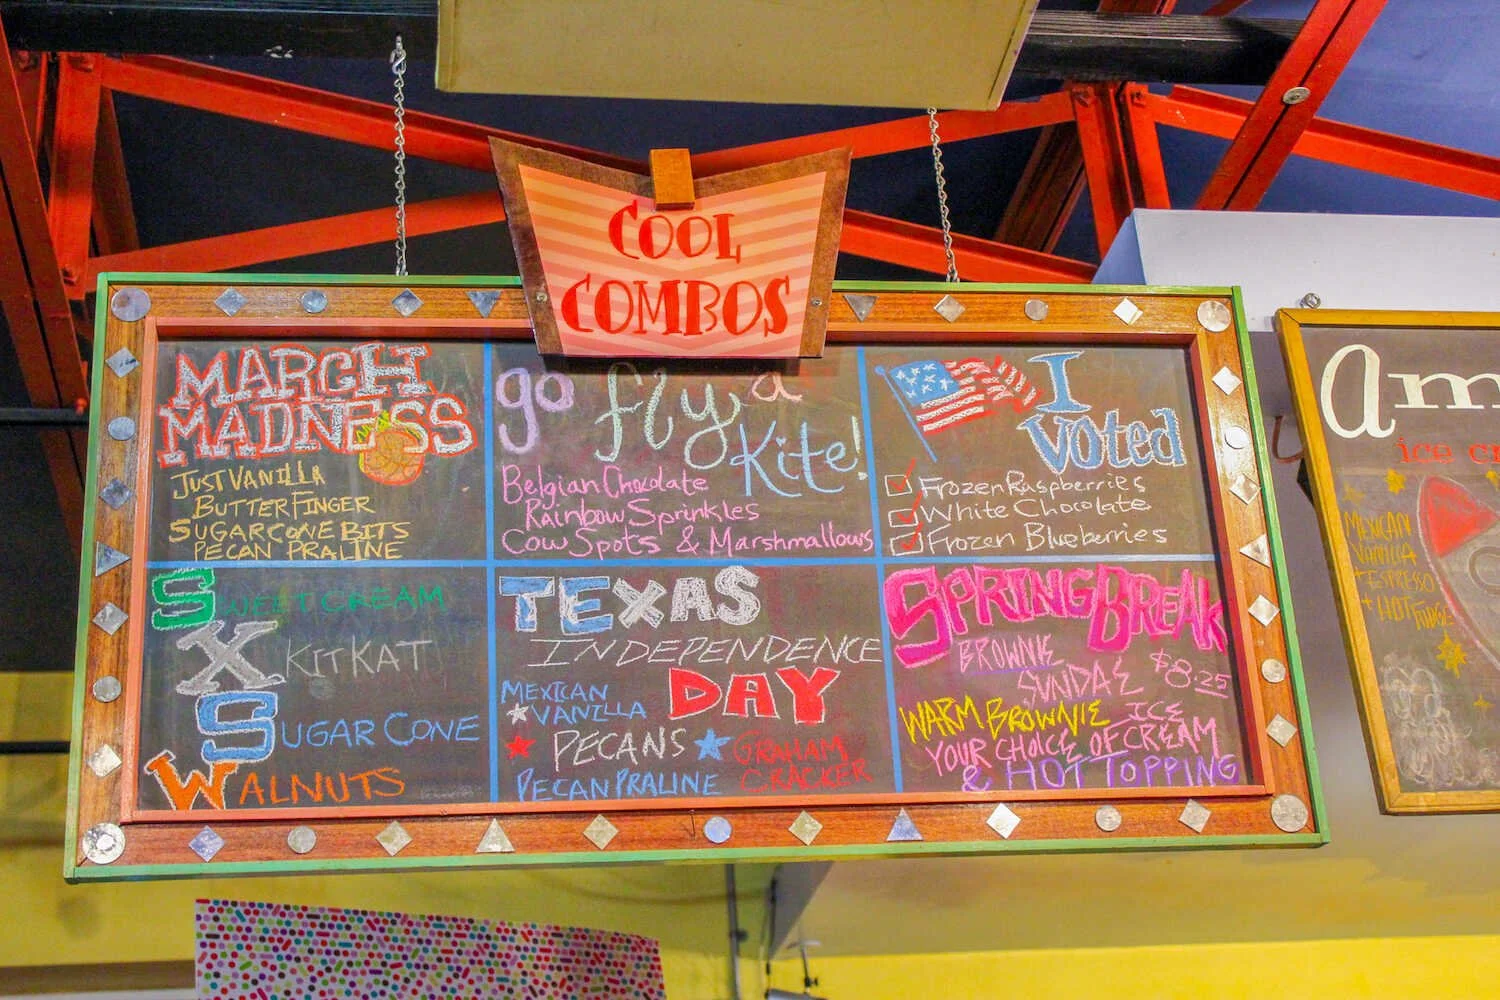 COOL
COMBOS
MARCH
MADNESS
JUST VANILLA
BUTTERFINGER
SUGARCONE BITS
PECAN PRALINE
go fly a
Kite!
Belgian Chocolate
Rainbow Sprinkles
Cow Spots & Marshmallows
I
Voted
Frozen Raspberries
White Chocolate
Frozen Blueberries
SWEET CREAM
X KITKAT
SUGAR CONE
WALNUTS
TEXAS
INDEPENDENCE
DAY
MEXICAN
VANILLA
PECANS
GRAHAM
CRACKER
PECAN PRALINE
SPRING BREAK
BROWNIE
SUNDAE $8.25
WARM BROWNIE
YOUR CHOICE OF ICE CREAM
& HOT TOPPING
am
ice c
MEXICAN
VANILLA
+ ESPRESSO
+ HOT FUDGE